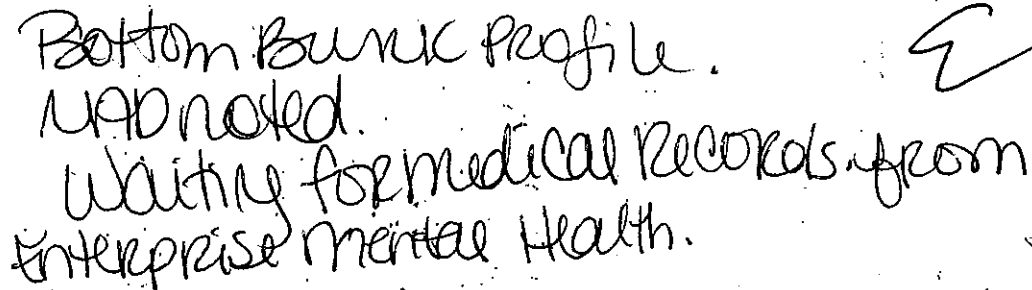 Bottom Bunk Profile.
NAD noted.
Waiting for medical Records from
Enterprise Mental Health.